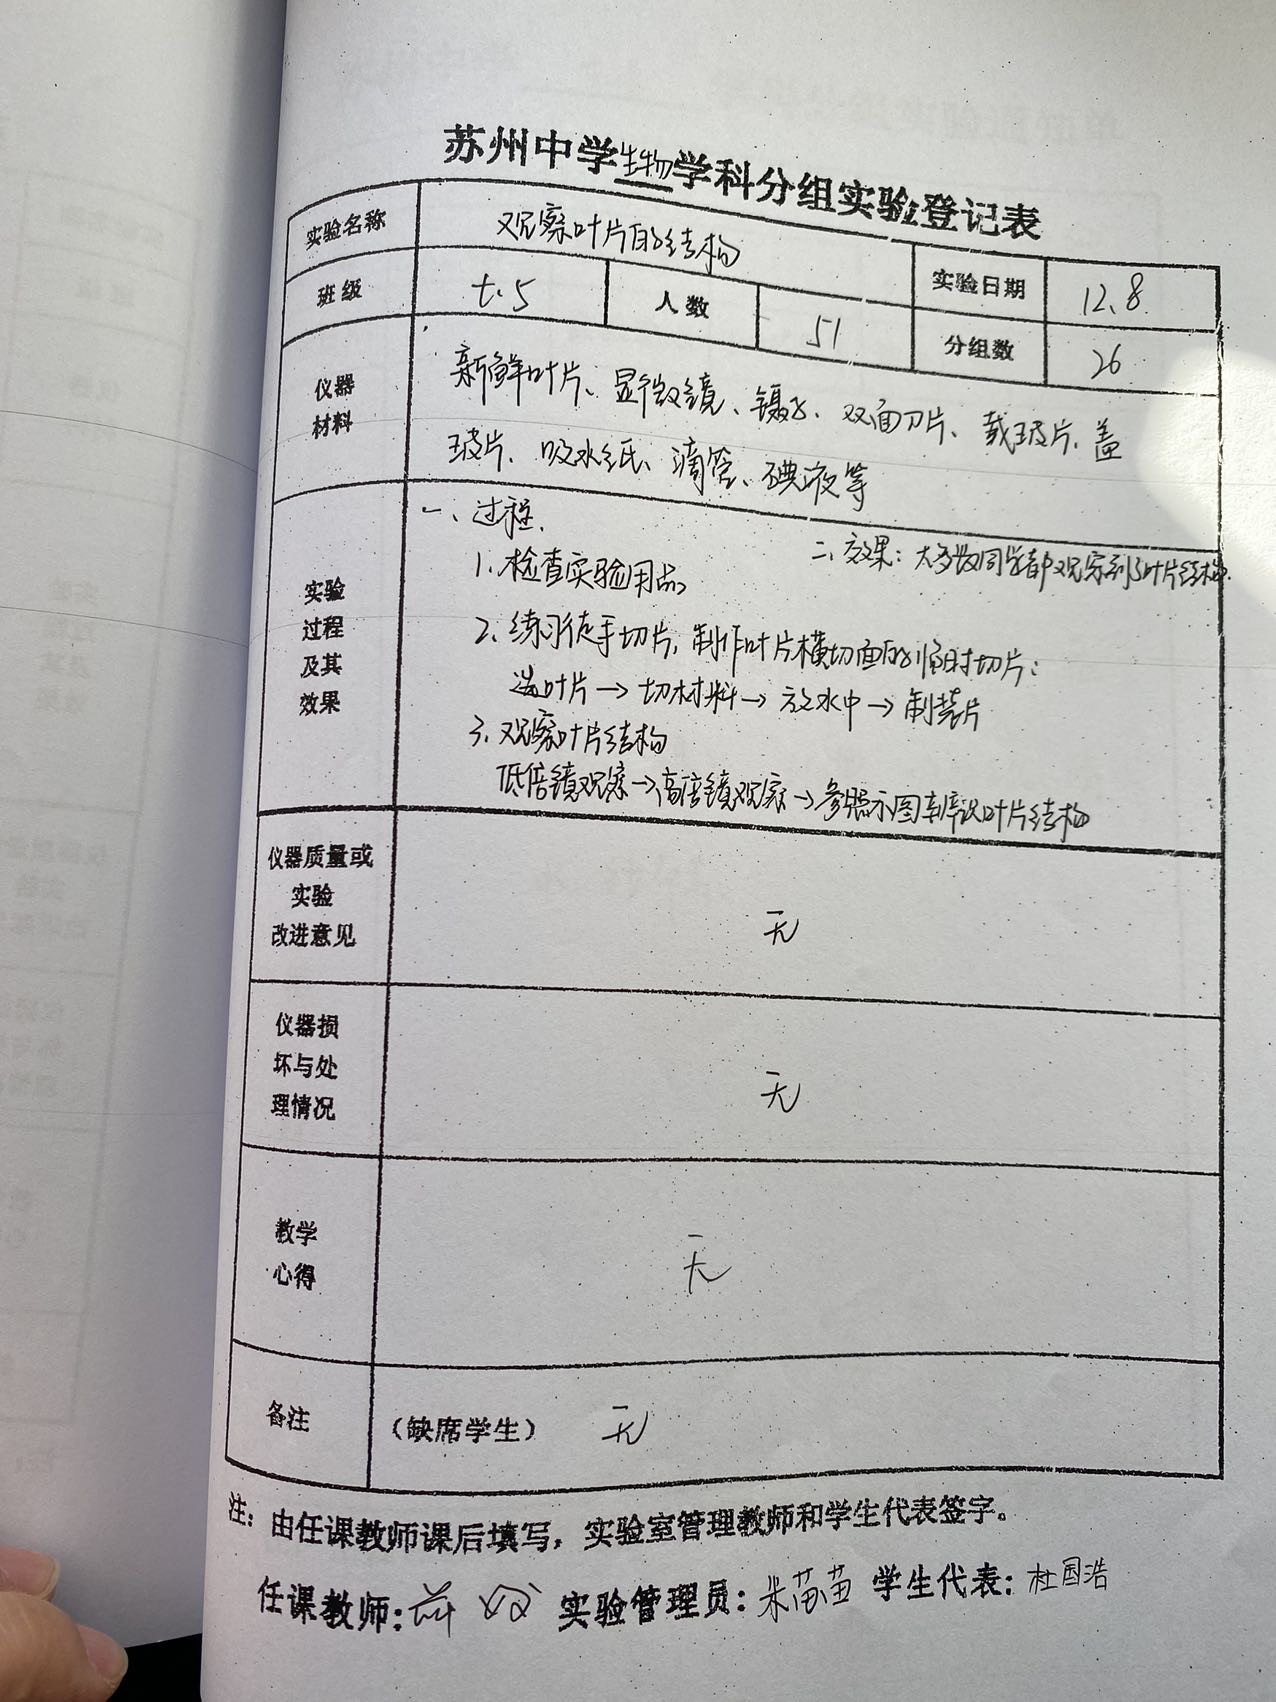 苏州中学生物学科分组实验登记表
实验名称 观察叶片的结构 实验日期 12.8
班级 七.5 人数 51 分组数 26
仪器
材料
新鲜叶片、显微镜、镊子、双面刀片、载玻片、盖
玻片、吸水纸、滴管、碘液等
实验
过程
及其
效果
一、过程.
1、检查实验用品
2、练习徒手切片,制作叶片横切面的临时切片:
选叶片→切材料→放水中→制装片
3、观察叶片结构
低倍镜观察→高倍镜观察→参照示图辨认叶片结构
二、效果:大多数同学都观察到了叶片结构.
仪器质量或
实验
改进意见
无
仪器损
坏与处
理情况
无
教学
心得
无
备注 (缺席学生) 无
注:由任课教师课后填写,实验室管理教师和学生代表签字。
任课教师: 实验管理员:朱苗苗 学生代表:杜国浩